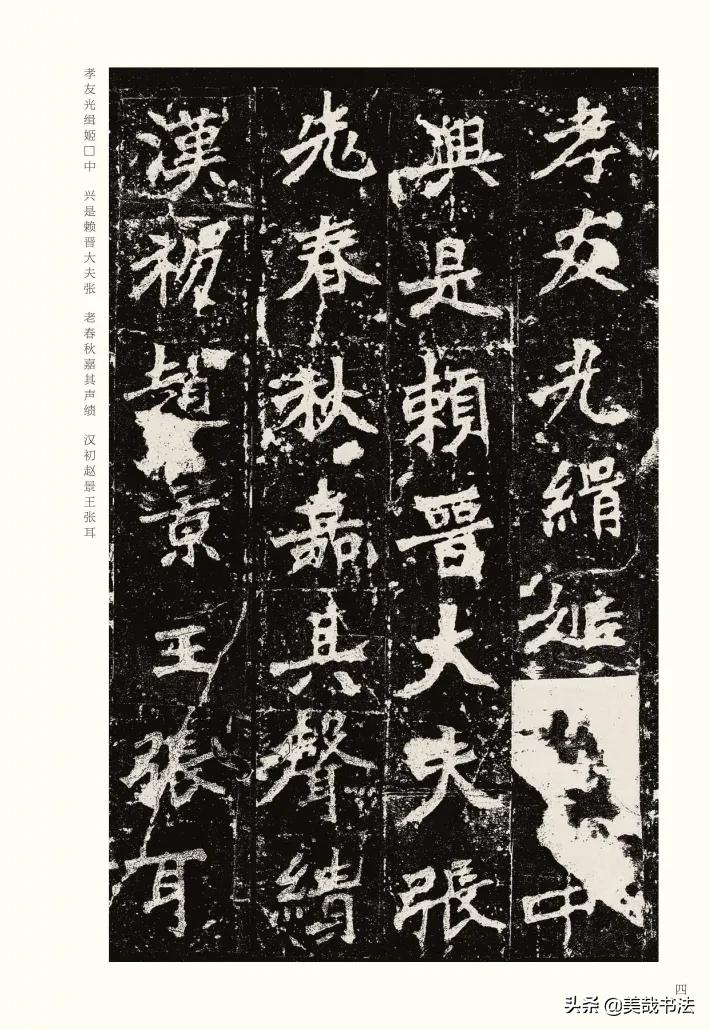 孝友光緝姬中
興是賴晉大夫張
老春秋嘉其聲績
漢初趙景王張耳
孝友光缉姬□中　兴是赖晋大夫张　老春秋嘉其声绩　汉初赵景王张耳
四
头条 @美哉书法